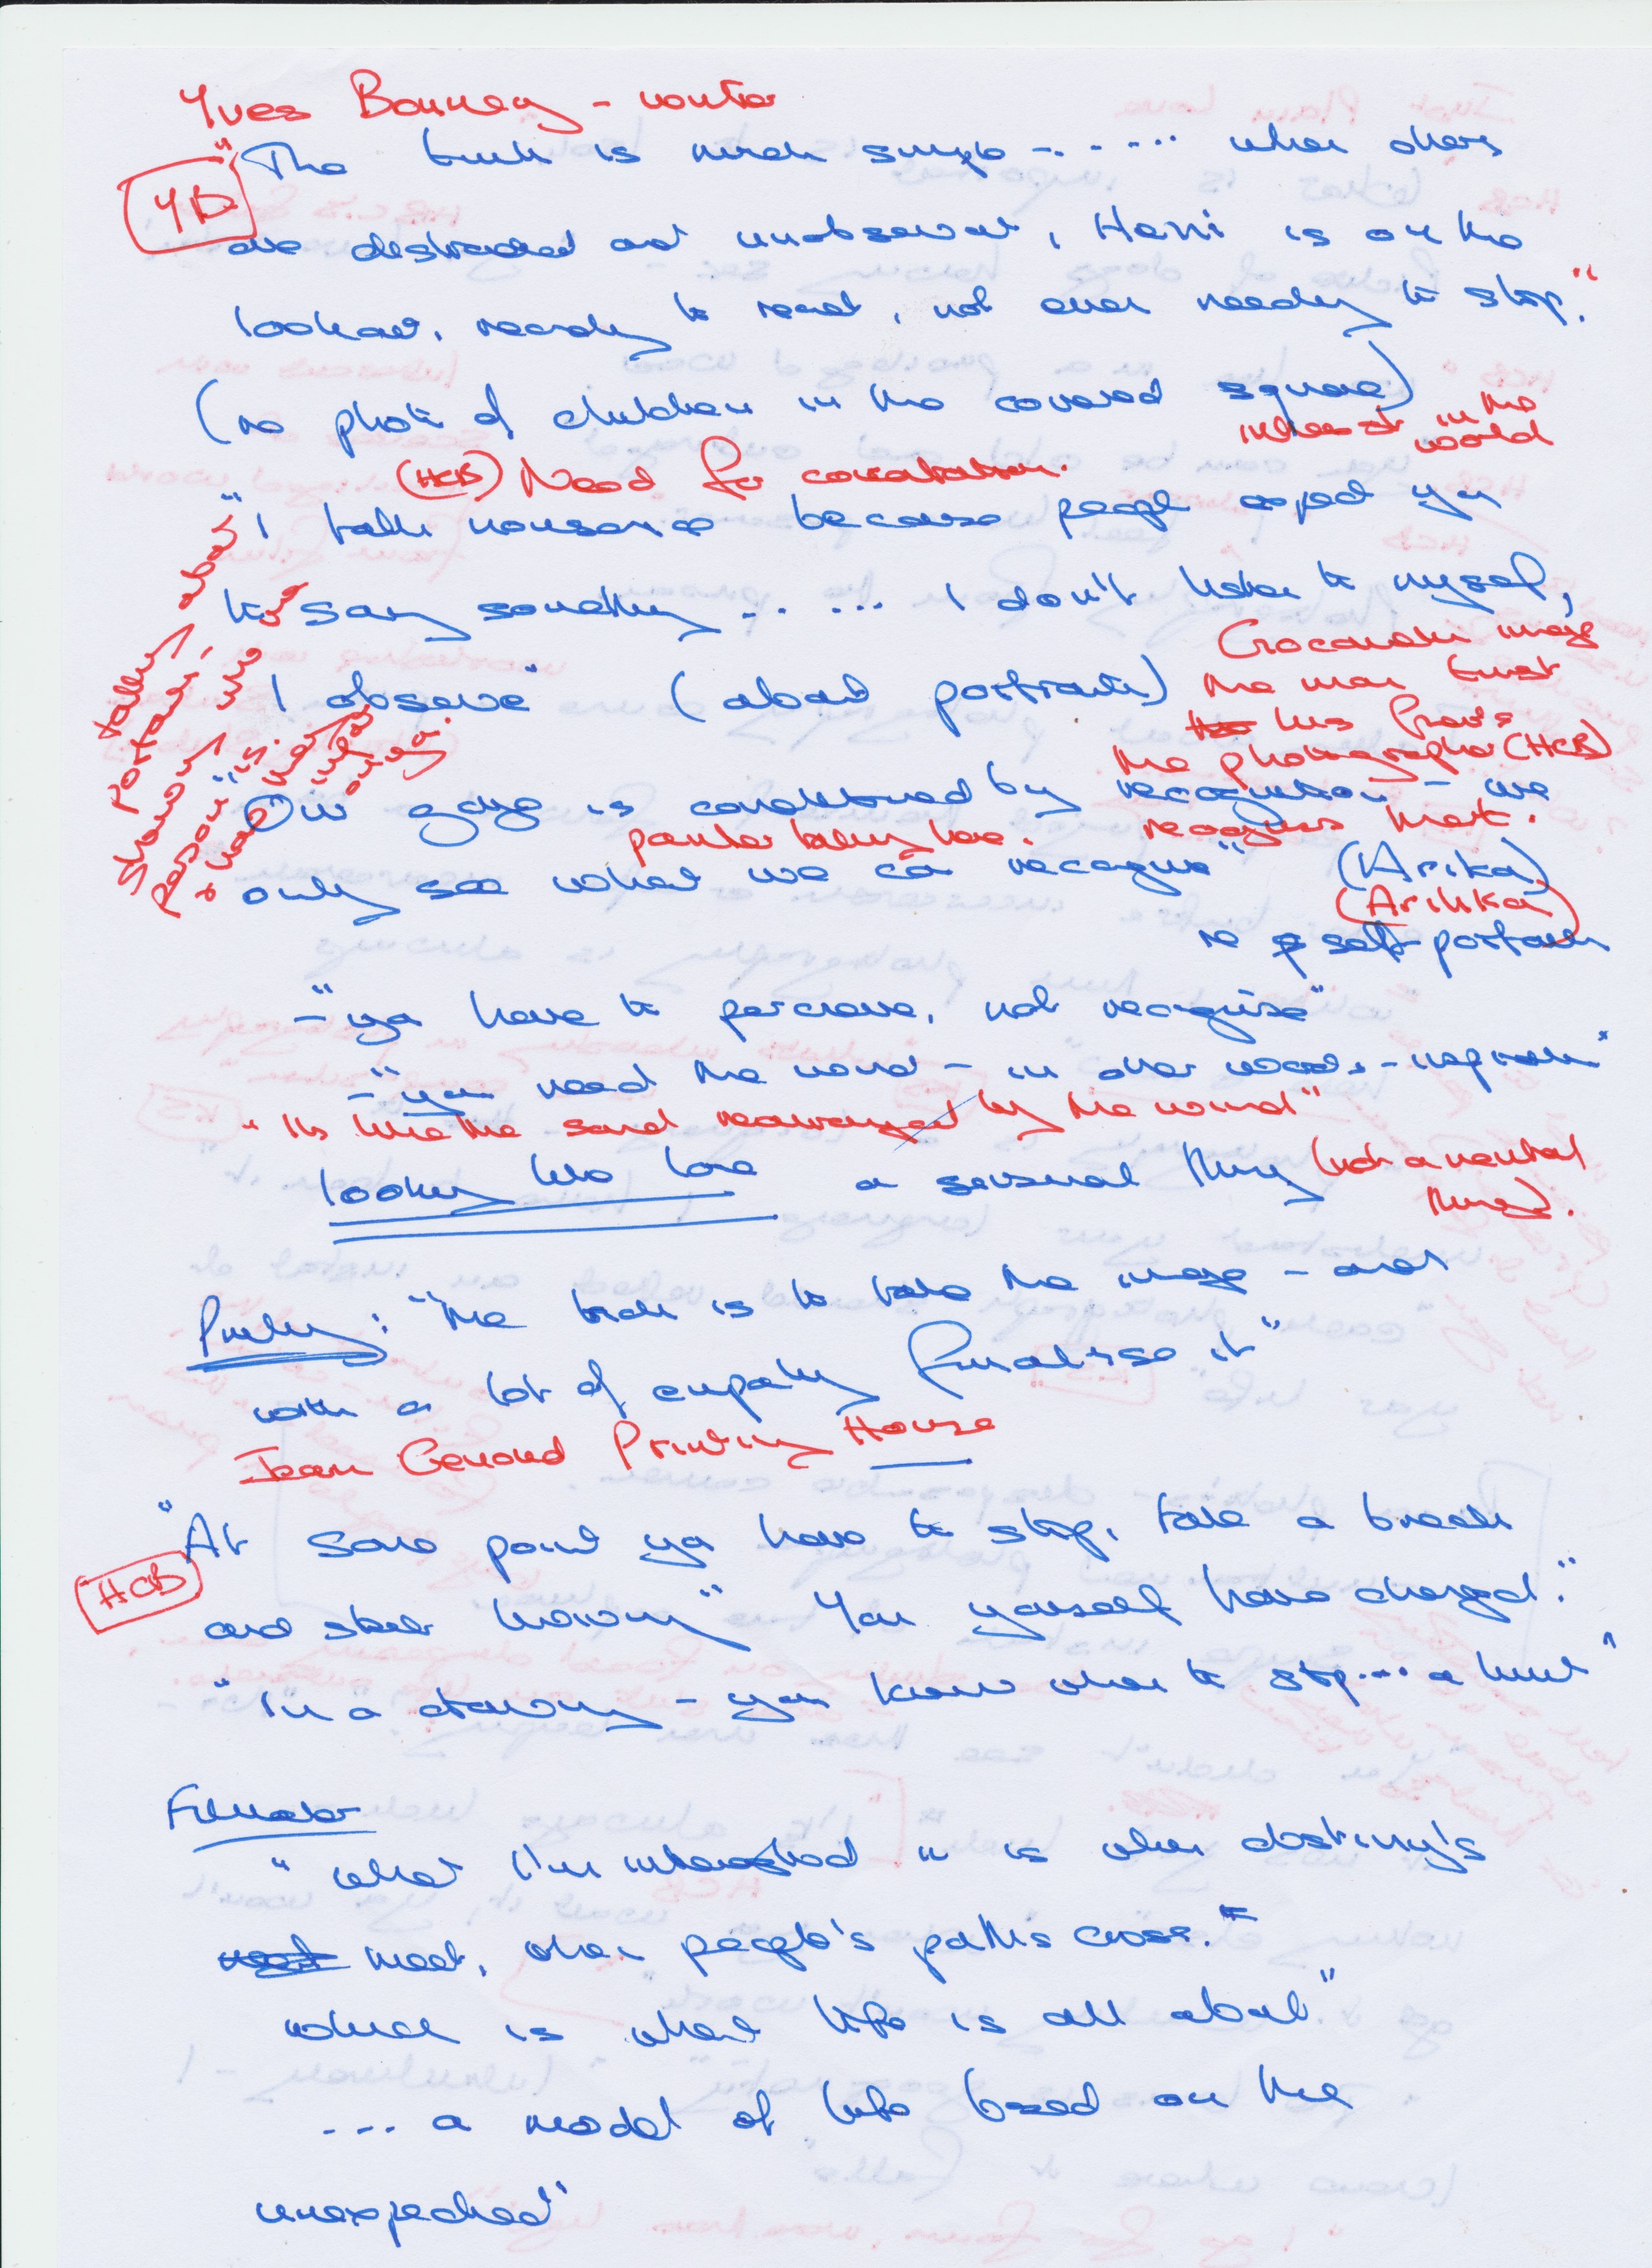 Yves Bonney - writer
"The truth is much simple - ..... when others
YB
are distracted and unobservant, Henri is on the
lookout, ready to react, not even needing to stop."
(re photo of children in the covered square)
interest in the world
(HCB) Need for consolation.
"I talk nonsense because people expect you
to say something ..... I don't listen to myself,
I observe" (about portraits)
talking about
portraits,
showing who
person is.
Giacometti image
the man trust
his
the photographer (HCB)
Our gaze is conditioned by recognition - we
recognises that.
painter talking here.
only see what we can recognise" (Arika)
(Arikha)
re self-portraits
- "you have to perceive, not recognise"
- "you need the wind - in other words -
"It's like the sand rearranged by the wind"
looking like love a sensual thing (not a neutral
thing).
Printing: "the trick is to take the image - and
with a lot of empathy finalise it"
Jean Genoud Printing House
"At some point you have to stop, take a break
HCB
and start drawing" You yourself have changed."
"in a drawing - you know when to stop... a limit"
Filmmaker
"what I'm interested in is when destiny's
meet, when people's paths cross."
which is what life is all about"
... a model of life based on the
unexpected"